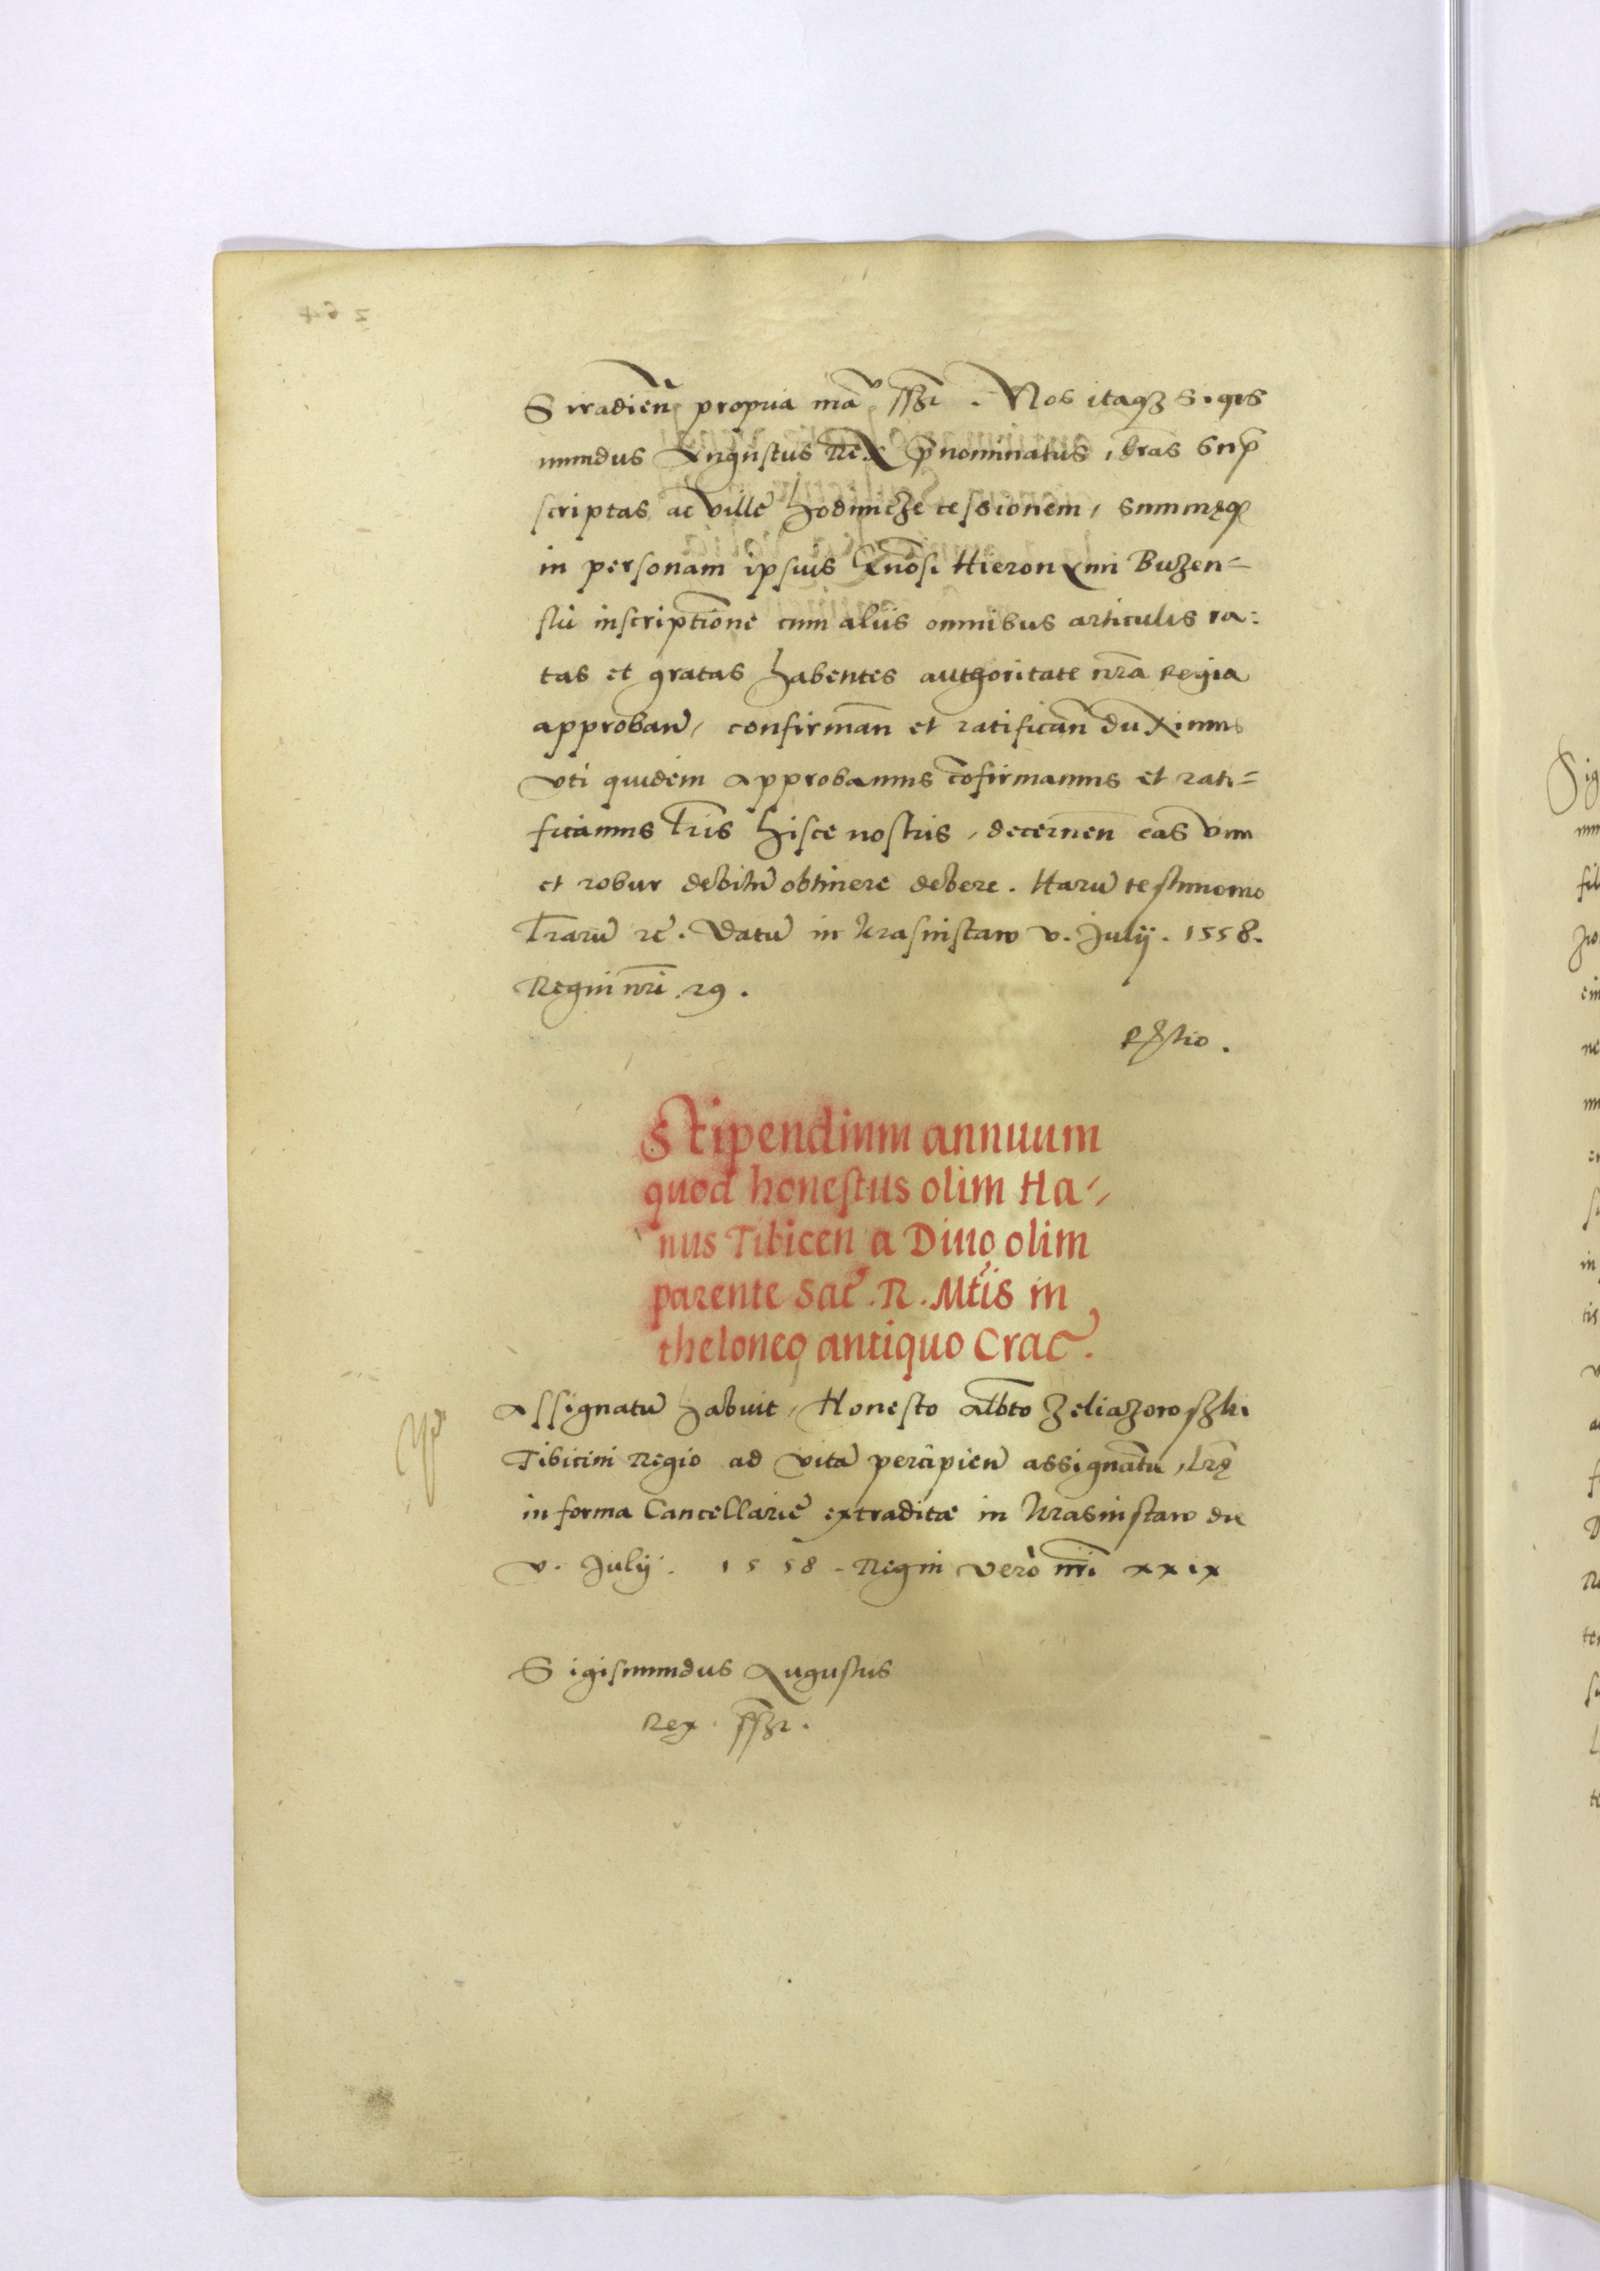 Siradień propria mã sszt. Nos itaqz Sigis
mundus Augustus Rex p̃nominatus, lr̃as sup̃
scriptas ac villæ hodunicze cessionem, summęq
in personam ipsius Gnõsi Hieronymi Buzen=
sky inscriptionẽ cum aliis omnibus articulis ra:
tas et gratas habentes authoritate nr̃a Regia
approbañ, confirmañ et ratificañ duximus
vti quidem approbamus cõfirmamus et rati=
ficamus lr̃is hisce nostris, decerneñ eas vim
et robur debitũ obtinere debere. Harũ testimonio
lr̃arũ &c̃. Datũ in Krasnistaw v. July. 1558.
Regni nr̃i 29.
Rłtio.
Stipendium annuum
quod honestus olim Ha=
nus Tibicen a Diuo olim
parente Sac̃. R. Mt̃is in
theloneo antiquo Crac̃.
Assignatũ habuit, Honesto Alb̃to Zeliazoroszki
Tibicini Regio ad vitã percipień assignatũ, lr̃ę
in forma Cancellariæ extraditæ in Krasnistaw die
v. July. 1558. Regni verò nr̃i xxix
Sigismundus Augustus
Rex. sszt.